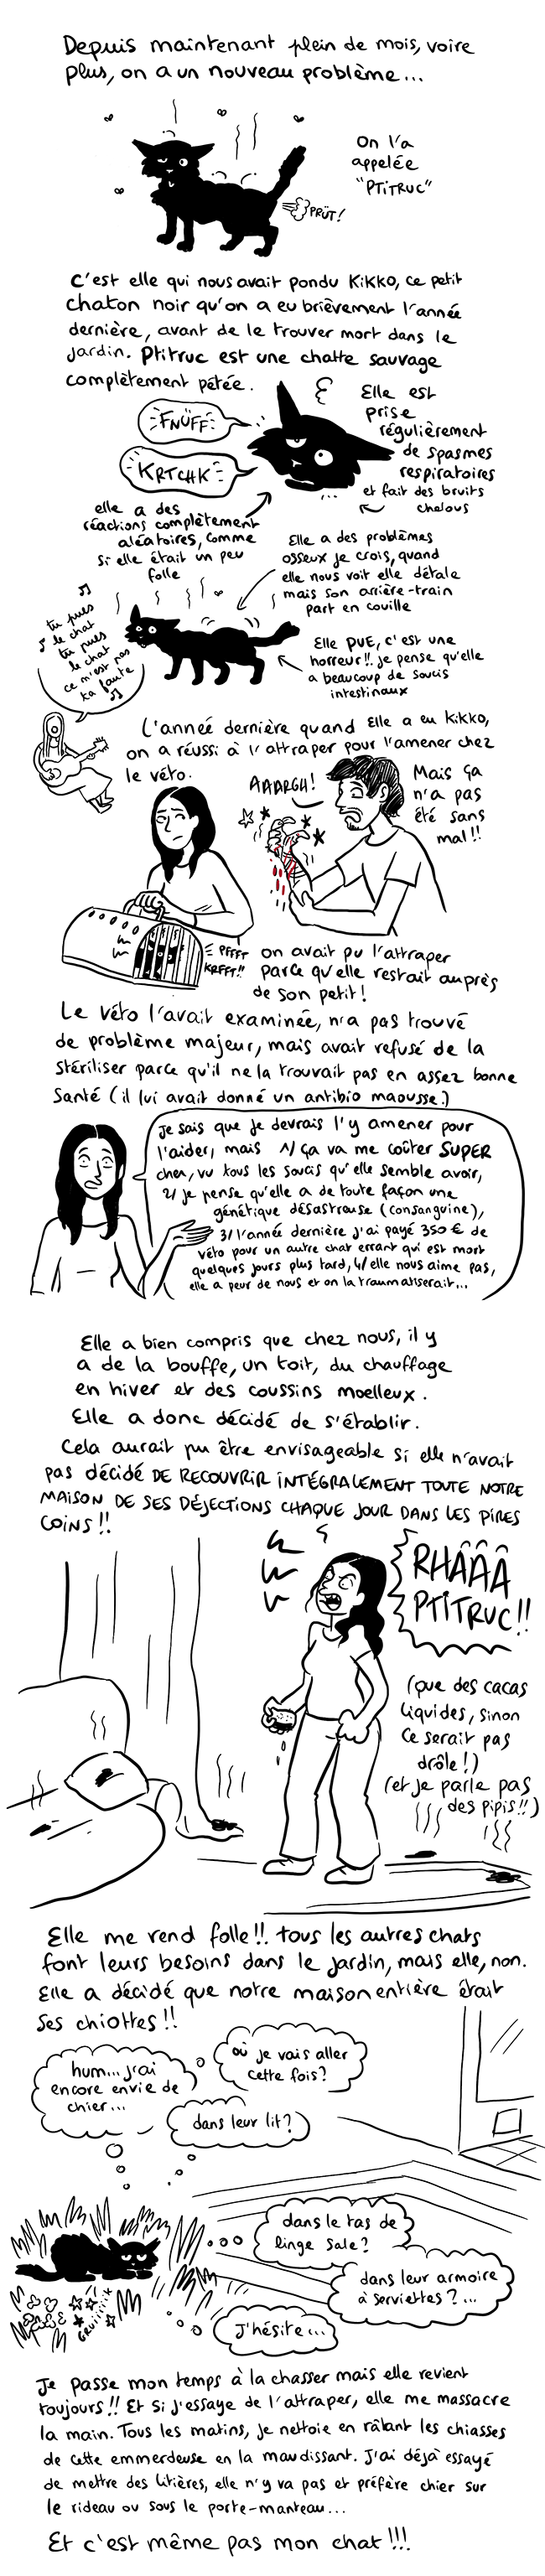 Depuis maintenant plein de mois, voire
plus, on a un nouveau problème...
On l'a
appelée
"PTITRUC"
PRÜT!
C'est elle qui nous avait pondu Kikko, ce petit
chaton noir qu'on a eu brièvement l'année
dernière, avant de le trouver mort dans le
jardin. Ptitruc est une chatte sauvage
complètement pétée.
FNÜFF
KRTCHK
Elle est
prise
régulièrement
de spasmes
respiratoires
et fait des bruits
chelous
elle a des
réactions complètement
aléatoires, comme
si elle était un peu
folle
Elle a des problèmes
osseux je crois, quand
elle nous voit elle détale
mais son arrière-train
part en couille
tu pues
le chat
tu pues
le chat
ce n'est pas
ta faute
Elle PUE, c'est une
horreur!! je pense qu'elle
a beaucoup de soucis
intestinaux
L'année dernière quand elle a eu Kikko,
on a réussi à l'attraper pour l'amener chez
le véto.
AAARGH!
Mais ça
n'a pas
été sans
mal!!
PFFFT
KRFFT!!
on avait pu l'attraper
parce qu'elle restait auprès
de son petit!
Le véto l'avait examinée, n'a pas trouvé
de problème majeur, mais avait refusé de la
stériliser parce qu'il ne la trouvait pas en assez bonne
santé (il lui avait donné un antibio maousse.)
je sais que je devrais l'y amener pour
l'aider, mais 1/ ça va me coûter SUPER
cher, vu tous les soucis qu'elle semble avoir,
2/ je pense qu'elle a de toute façon une
génétique désastreuse (consanguine),
3/ l'année dernière j'ai payé 350€ de
véto pour un autre chat errant qui est mort
quelques jours plus tard, 4/ elle nous aime pas,
elle a peur de nous et on la traumatiserait...
Elle a bien compris que chez nous, il y
a de la bouffe, un toit, du chauffage
en hiver et des coussins moelleux.
Elle a donc décidé de s'établir.
Cela aurait pu être envisageable si elle n'avait
pas décidé DE RECOUVRIR INTÉGRALEMENT TOUTE NOTRE
MAISON DE SES DÉJECTIONS CHAQUE JOUR DANS LES PIRES
COINS!!
RHÂÂÂ
PTITRUC!!
(que des cacas
liquides, sinon
ce serait pas
drôle!)
(et je parle pas
des pipis!!)
Elle me rend folle!! tous les autres chats
font leurs besoins dans le jardin, mais elle, non.
Elle a décidé que notre maison entière était
ses chiottes!!
hum... j'ai
encore envie de
chier...
où je vais aller
cette fois?
dans leur lit?
dans le tas de
linge sale?
dans leur armoire
à serviettes?...
J'hésite...
Je passe mon temps à la chasser mais elle revient
toujours!! Et si j'essaye de l'attraper, elle me massacre
la main. Tous les matins, je nettoie en râlant les chiasses
de cette emmerdeuse en la maudissant. J'ai déjà essayé
de mettre des litières, elle n'y va pas et préfère chier sur
le rideau ou sous le porte-manteau...
Et c'est même pas mon chat!!!